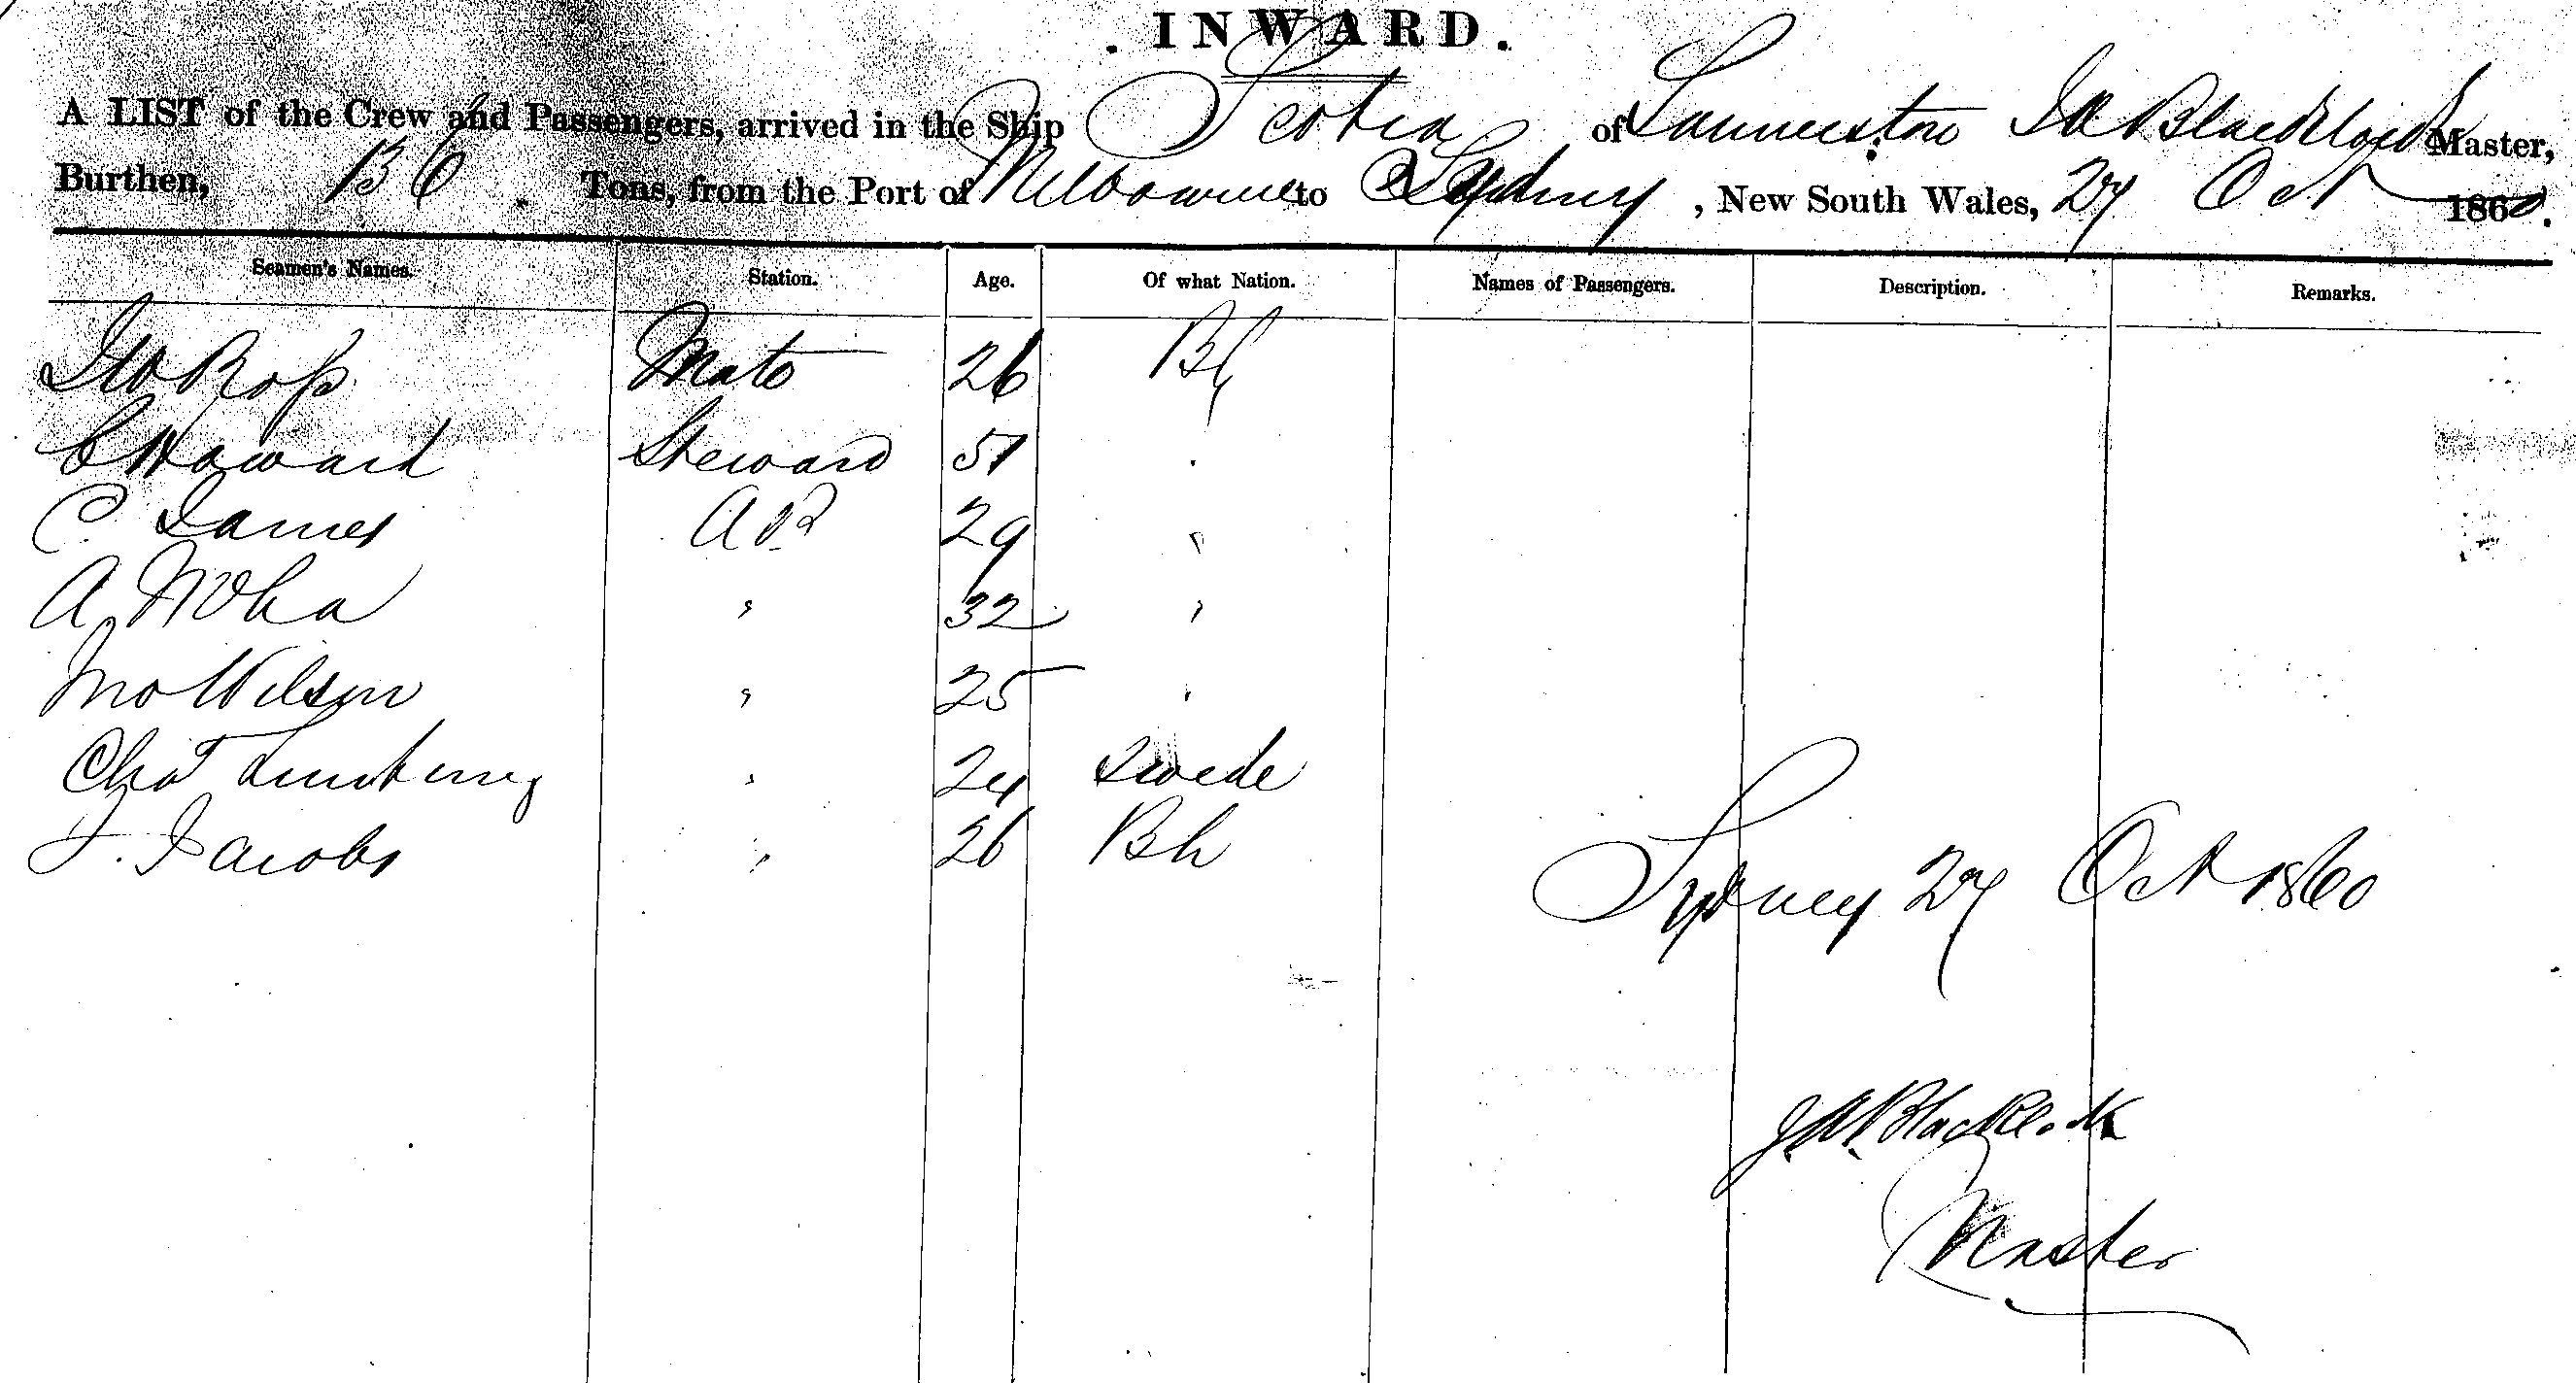 INWARD.
A LIST of the Crew and Passengers, arrived in the Ship Scotia of Launceston J A Blacklock Master,
Burthen, 136 Tons, from the Port of Melbourne to Sydney, New South Wales, 27 Oct 1860.
Seamen's Names. Station. Age. Of what Nation. Names of Passengers. Description. Remarks.
Geo Ross Mate 26
C Howard Steward 51
C. James A B 29 "
A " 32 "
Jno Wilson " 25 "
Chas " 24 Swede
J. Jacobs " 26 Bh
Sydney 27 Oct 1860
J.A. Blacklock
Master